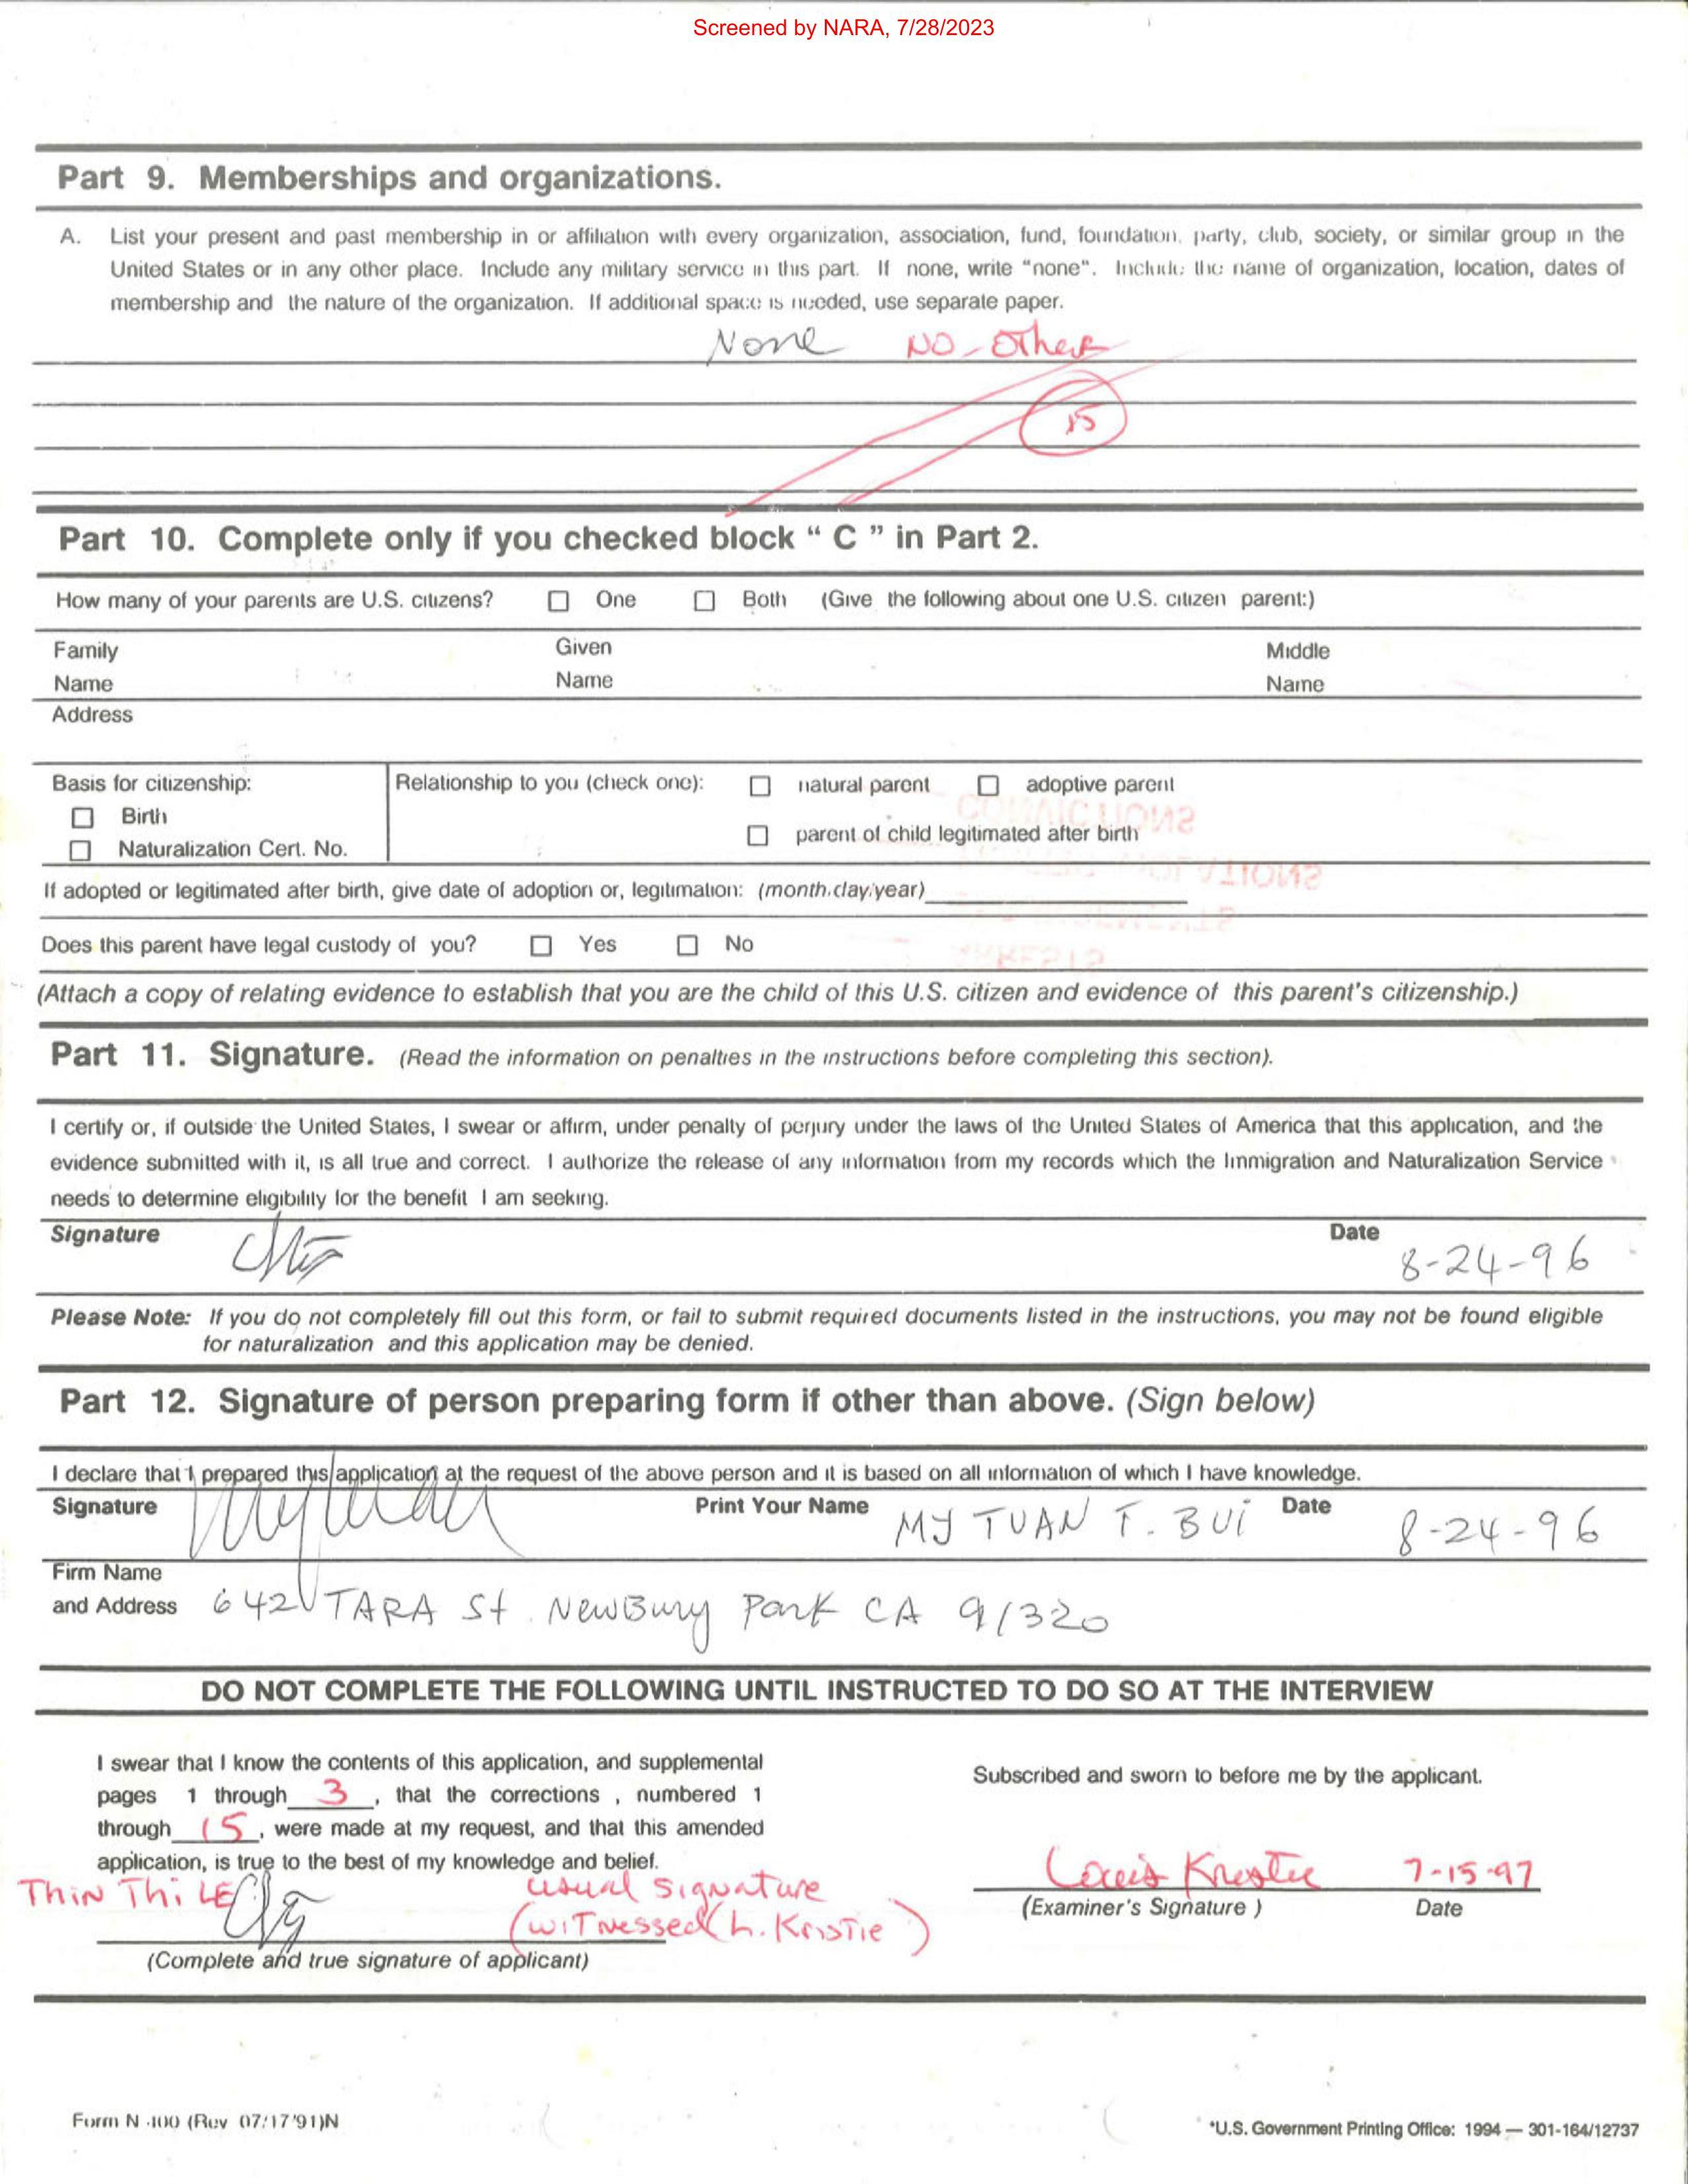 Screened by NARA, 7/28/2023
Part 9. Memberships and organizations.
A. List your present and past membership in or affiliation with every organization, association, fund, foundation, party, club, society, or similar group in the
United States or in any other place. Include any military service in this part. If none, write "none". Include the name of organization, location, dates of
membership and the nature of the organization. If additional space is needed, use separate paper.
None NO-Other
15
Part 10. Complete only if you checked block " C " in Part 2.
How many of your parents are U.S. citizens? ☐ One ☐ Both (Give the following about one U.S. citizen parent:)
Family Given Middle
Name Name Name
Address
Basis for citizenship: Relationship to you (check one): ☐ natural parent ☐ adoptive parent
☐ Birth
☐ parent of child legitimated after birth
☐ Naturalization Cert. No.
If adopted or legitimated after birth, give date of adoption or, legitimation: (month,day,year)
Does this parent have legal custody of you? ☐ Yes ☐ No
(Attach a copy of relating evidence to establish that you are the child of this U.S. citizen and evidence of this parent's citizenship.)
Part 11. Signature. (Read the information on penalties in the instructions before completing this section).
I certify or, if outside the United States, I swear or affirm, under penalty of perjury under the laws of the United States of America that this application, and the
evidence submitted with it, is all true and correct. I authorize the release of any information from my records which the Immigration and Naturalization Service
needs to determine eligibility for the benefit I am seeking.
Signature Date 8-24-96
Please Note: If you do not completely fill out this form, or fail to submit required documents listed in the instructions, you may not be found eligible
for naturalization and this application may be denied.
Part 12. Signature of person preparing form if other than above. (Sign below)
I declare that I prepared this application at the request of the above person and it is based on all information of which I have knowledge.
Signature Print Your Name MY TUAN T. BUI Date 8-24-96
Firm Name
and Address 642 TARA St. Newbury Park CA 91320
DO NOT COMPLETE THE FOLLOWING UNTIL INSTRUCTED TO DO SO AT THE INTERVIEW
I swear that I know the contents of this application, and supplemental
pages 1 through 3, that the corrections , numbered 1
through 15, were made at my request, and that this amended
application, is true to the best of my knowledge and belief.
Subscribed and sworn to before me by the applicant.
THIN THi LE usual signature
(witnessed L. Kristie)
(Complete and true signature of applicant)
Louis Kristie 7-15-97
(Examiner's Signature ) Date
Form N-400 (Rev 07/17/91)N
*U.S. Government Printing Office: 1994 — 301-164/12737